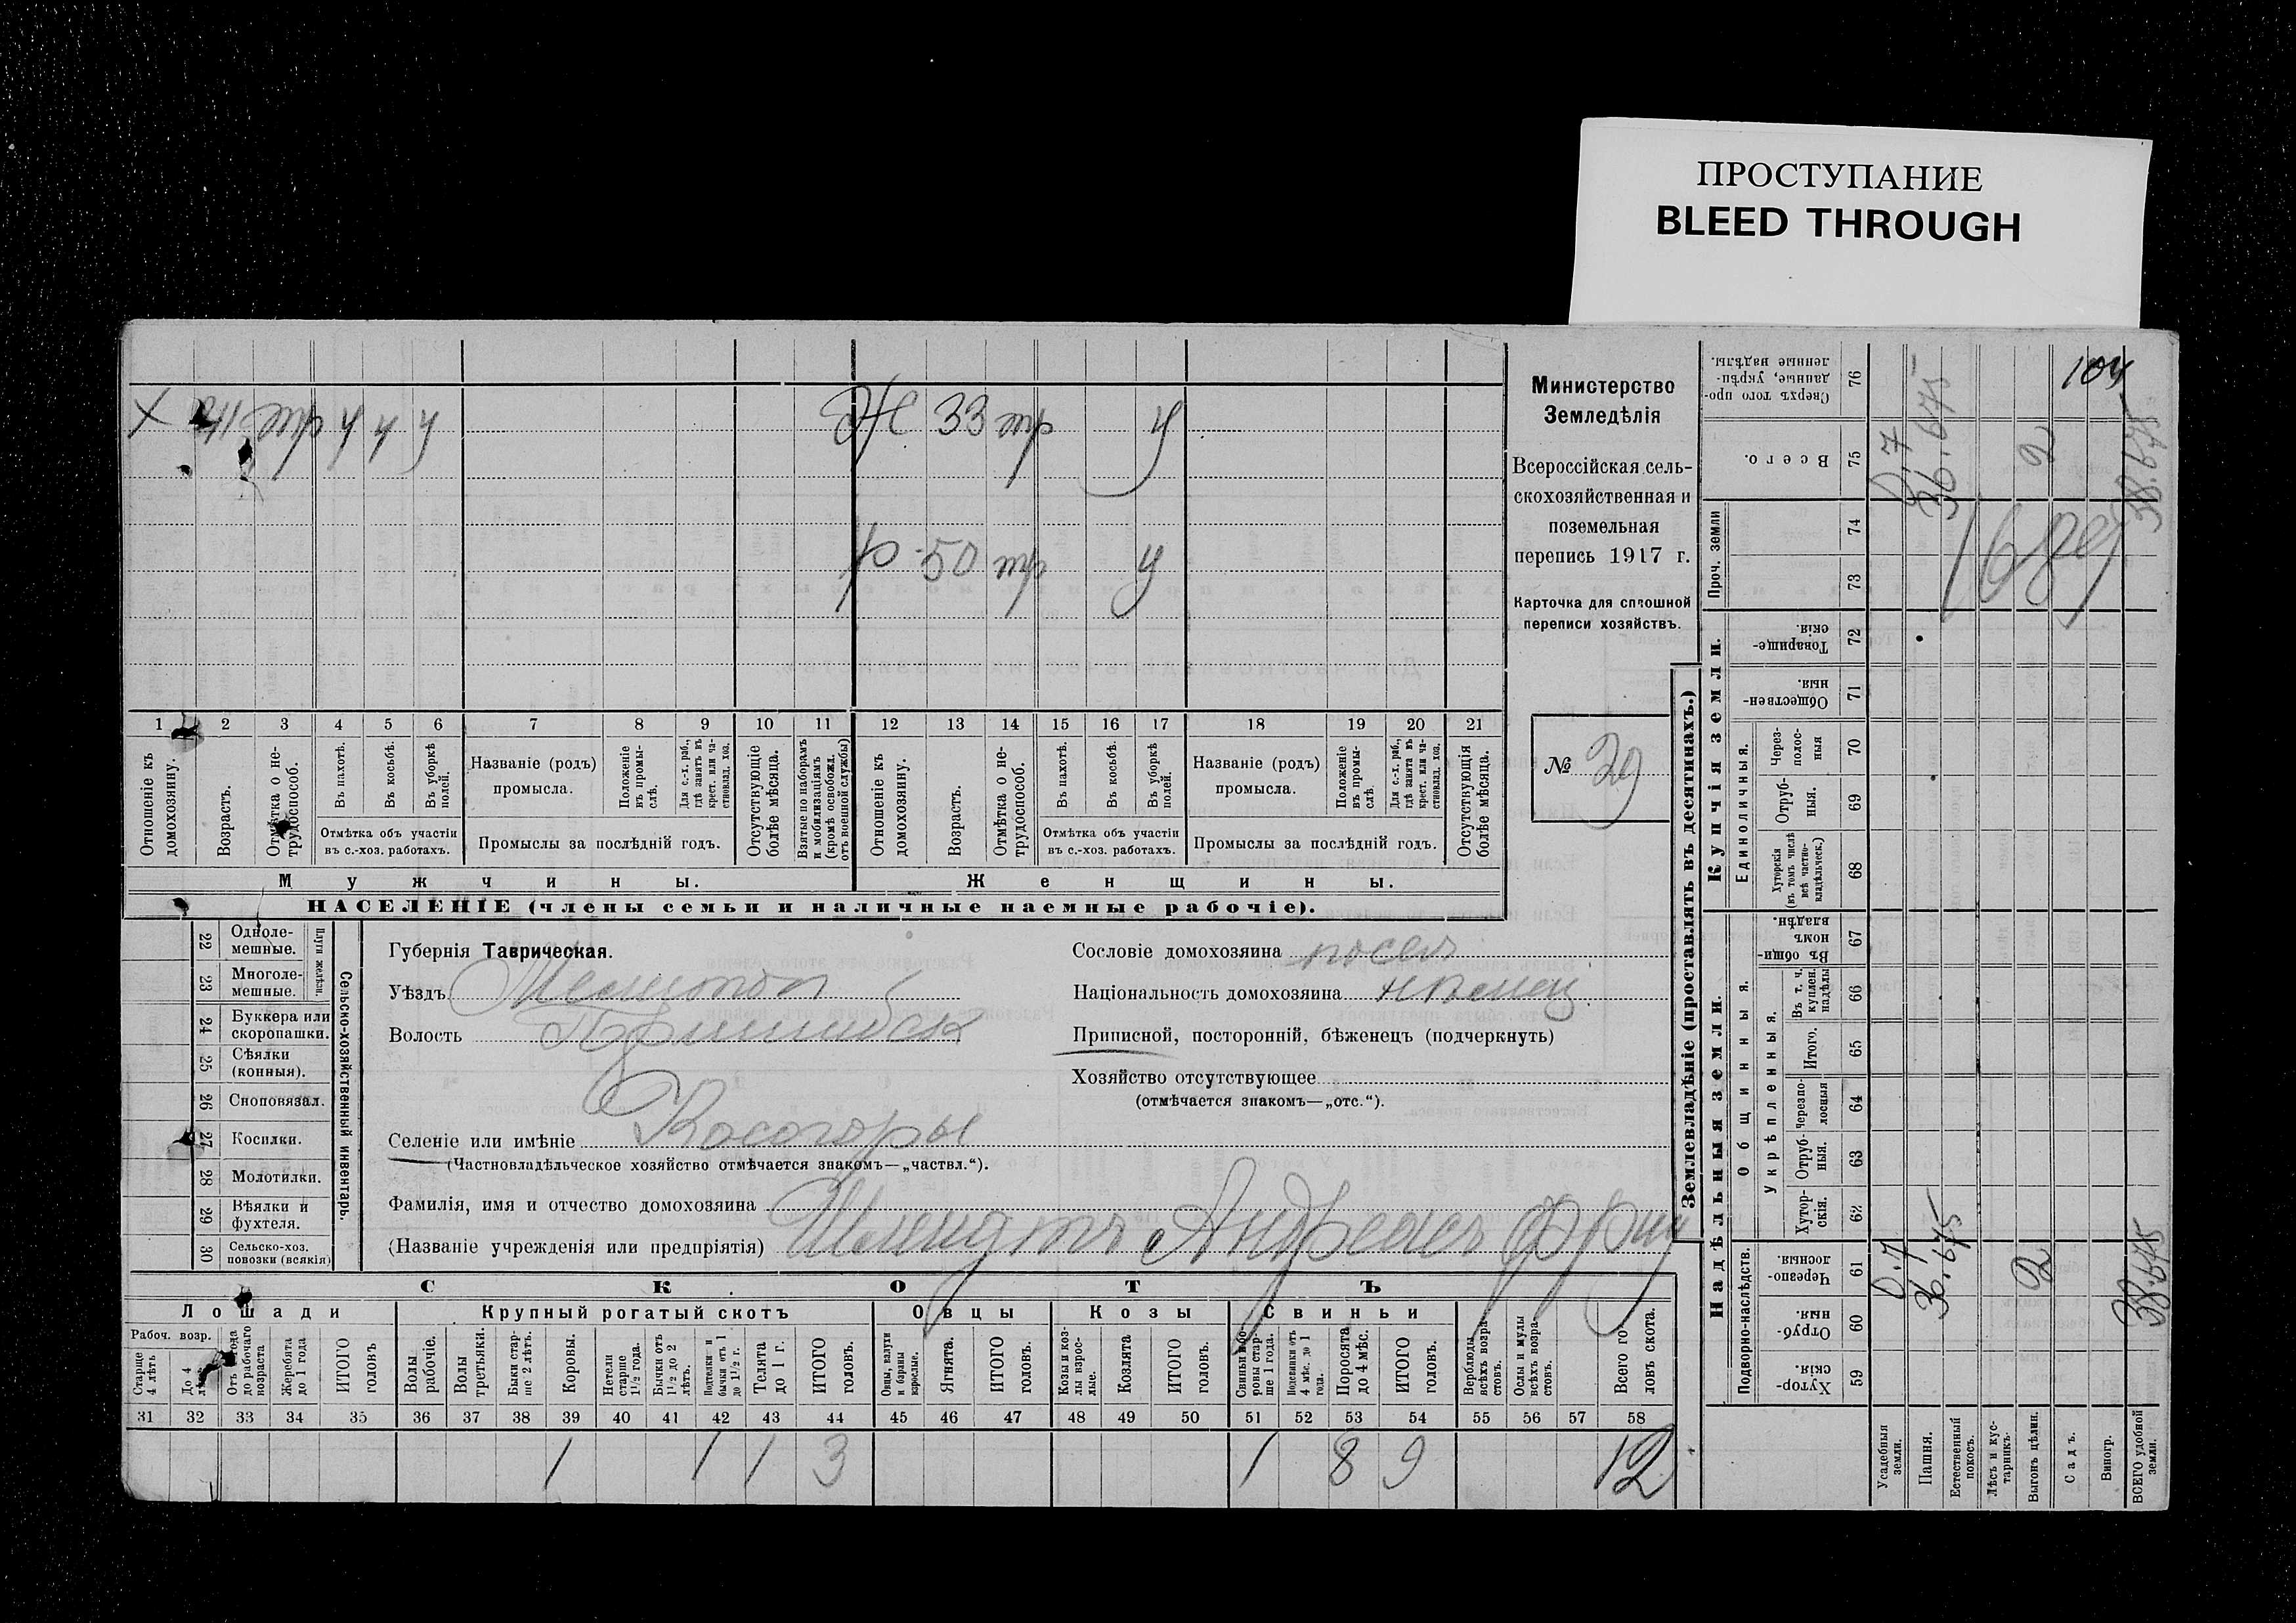 ПРОСТУПАНИЕ
BLEED THROUGH
Министерство
Земледѣлія
Всероссійская сель-
скохозяйственная и
поземельная
перепись 1917 г.
Карточка для сплошной
переписи хозяйствъ.
№ 29
Х
Ж 33 тр у
р. 50 тр у
1 2 3 4 5 6 7 8 9 10 11 12 13 14 15 16 17 18 19 20 21
Отношеніе къ домохозяину.
Возрастъ.
Отмѣтка о не-трудоспособ.
Въ пахотѣ.
Въ косьбѣ.
Въ уборкѣ полей.
Отмѣтка объ участіи
въ с.-хоз. работахъ.
Названіе (родъ)
промысла.
Положеніе въ промы-слѣ.
Для с.-х. раб., гдѣ занятъ въ крест. или ча-стновлад. хоз.
Промыслы за послѣдній годъ.
Отсутствующіе болѣе мѣсяца.
Взятые по наборамъ и мобилизаціямъ (кромѣ освобожд. отъ военной службы)
Отношеніе къ домохозяину.
Возрастъ.
Отмѣтка о не-трудоспособ.
Въ пахотѣ.
Въ косьбѣ.
Въ уборкѣ полей.
Отмѣтка объ участіи
въ с.-хоз. работахъ.
Названіе (родъ)
промысла.
Положеніе въ промы-слѣ.
Для с.-х. раб., гдѣ занята въ крест. или ча-стновлад. хоз.
Промыслы за послѣдній годъ.
Отсутствующія болѣе мѣсяца.
Мужчины. Женщины.
НАСЕЛЕНІЕ (члены семьи и наличные наемные рабочіе).
Сельско-хозяйственный инвентарь.
Плуги желѣзн.
22 Одноле-мешные.
23 Многоле-мешные.
24 Буккера или скоропашки.
25 Сѣялки (конныя).
26 Сноповязал.
27 Косилки.
28 Молотилки.
29 Вѣялки и фухтеля.
30 Сельско-хоз. повозки (всякія)
Губернія Таврическая.
Уѣздъ Мелитоп
Волость Пришибск
Селеніе или имѣніе Косогоры
(Частновладѣльческое хозяйство отмѣчается знакомъ—„частвл.“).
Фамилія, имя и отчество домохозяина
(Названіе учрежденія или предпріятія) Шмидтъ Андреасъ Фри
Сословіе домохозяина посел
Національность домохозяина нѣмец
Приписной, посторонній, бѣженецъ (подчеркнуть)
Хозяйство отсутствующее
(отмѣчается знакомъ—„отс.“).
СКОТЪ
Лошади Крупный рогатый скотъ Овцы Козы Свиньи
Рабоч. возр.
Старше 4 лѣтъ
До 4
Отъ года до рабочаго возраста
Жеребята до 1 года
ИТОГО головъ
Волы рабочіе.
Волы третьяки.
Быки стар-ше 2 лѣтъ.
Коровы.
Нетели старше 1 1/2 года.
Бычки отъ 1 1/2 до 2 лѣтъ.
Подтелки и бычки отъ 1 до 1 1/2 г.
Телята до 1 г.
ИТОГО головъ.
Овцы, валухи и бараны взрослые.
Ягнята.
ИТОГО головъ.
Козы и коз-лы взрос-лые.
Козлята
ИТОГО головъ.
Свиньи бо-ровы стар-ше 1 года.
Подсвинки отъ 4 мѣс. до 1 года.
Поросята до 4 мѣс.
ИТОГО головъ.
Верблюды всѣхъ возра-стовъ.
Ослы и мулы всѣхъ возра-стовъ.
Всего го-ловъ скота.
31 32 33 34 35 36 37 38 39 40 41 42 43 44 45 46 47 48 49 50 51 52 53 54 55 56 57 58
1 1 1 3 1 8 9 12
Землевладѣніе (проставлять въ десятинахъ.)
Надѣльныя земли. Купчія земли. Проч. земли
Подворно-наслѣдств.
Общинныя.
Укрѣпленныя.
Единоличныя.
Хутор-скія. 59
Отруб-ныя. 60
Черезпо-лосныя. 61
Хутор-скія. 62
Отруб-ныя. 63
Черезпо-лосныя 64
Итого. 65
Въ т. ч. куплен. надѣлы 66
Въ общи-номъ владѣн. 67
Хуторскія (въ томъ числѣ всѣ частно-владѣльческ.) 68
Отруб-ныя. 69
Через-полос-ныя 70
Обществен-ныя. 71
Товарище-скія. 72
73
74
Всего. 75
Сверхъ того про-данные, укрѣп-ленные надѣлы. 76
Усадебныя земли.
Пашня.
Естественный покосъ.
Лѣсъ и кус-тарникъ.
Выгонъ цѣлин.
Садъ.
Виногр.
ВСЕГО удобной земли.
0.7 36.675 2 38.675
0.7 36.675 2 38.675
104